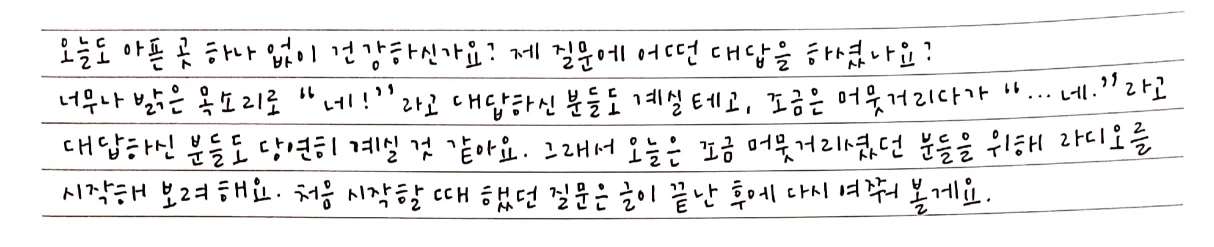 오늘도 아픈 곳 하나 없이 건강하신가요? 제 질문에 어떤 대답을 하셨나요?
너무나 밝은 목소리로 “네!” 라고 대답하신 분들도 계실 테고, 조금은 머뭇거리다가 “... 네.” 라고
대답하신 분들도 당연히 계실 것 같아요. 그래서 오늘은 조금 머뭇거리셨던 분들을 위해 라디오를
시작해 보려 해요. 처음 시작할 때 했던 질문은 글이 끝난 후에 다시 여쭤 볼게요.